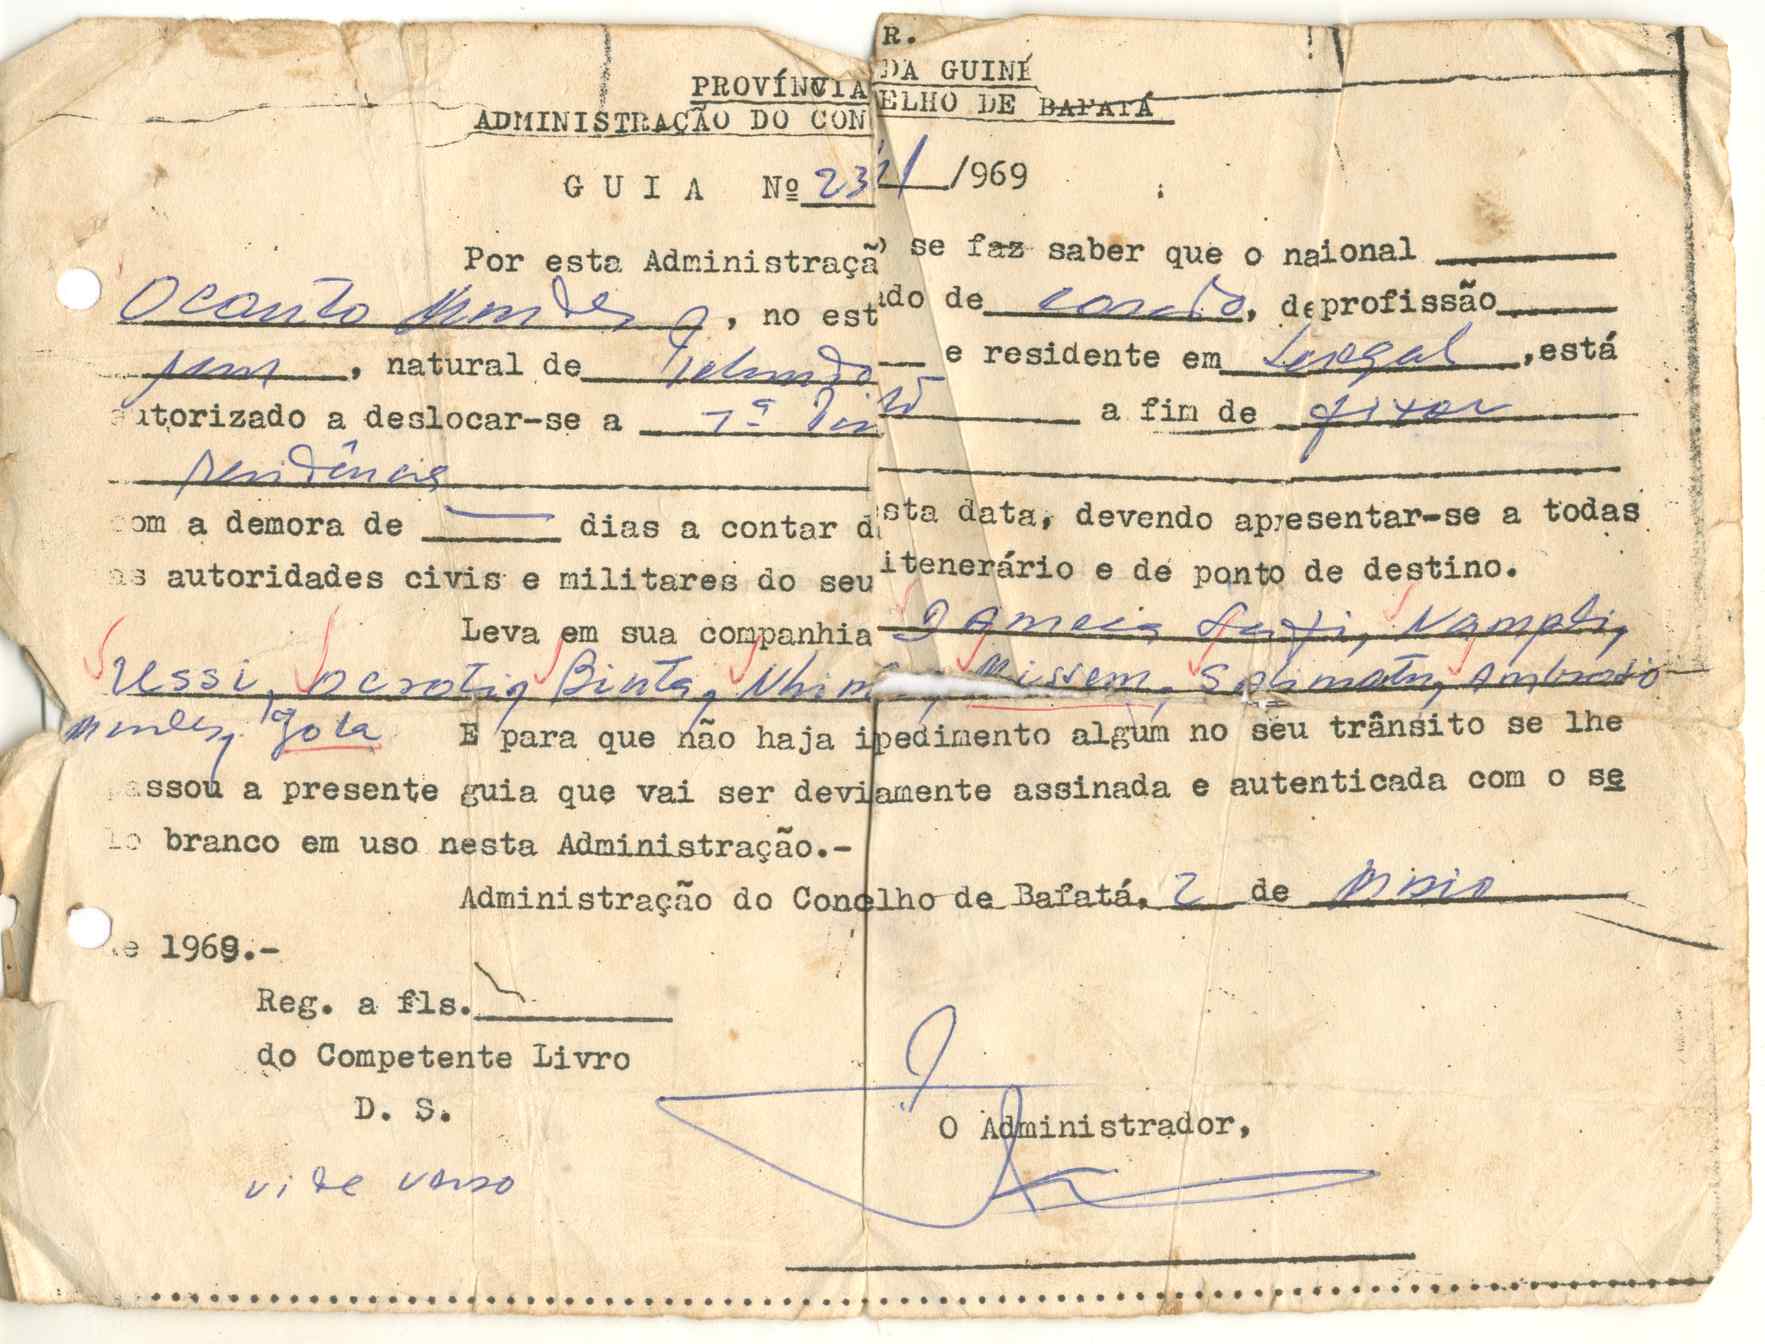 R.
PROVÍNCIA DA GUINÉ
ADMINISTRAÇÃO DO CONELHO DE BAFATÁ
GUIA Nº /969
Por esta Administração se faz saber que o naional
Ocanto Mendes, no estado de casado, de profissão
, natural de e residente em Senegal, está
autorizado a deslocar-se a a fim de fixar
residência
com a demora de dias a contar desta data, devendo apresentar-se a todas
as autoridades civis e militares do seu itenerário e de ponto de destino.
Leva em sua companhia Nampli,
Ussi, Ocroti, Binta, Missem, Ambrosio
Mendes, Igota E para que não haja ipedimento algum no seu trânsito se lhe
passou a presente guia que vai ser deviamente assinada e autenticada com o se
lo branco em uso nesta Administração.-
Administração do Conelho de Bafatá, 2 de Maio
de 1969.-
Reg. a fls.
do Competente Livro
D. S.
O Administrador,
vide verso